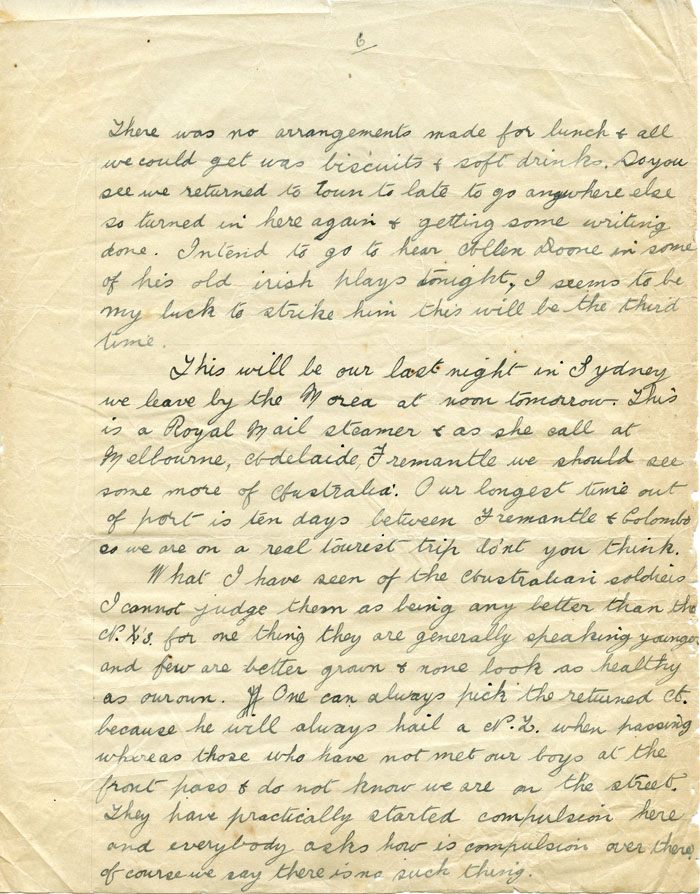 6
There was no arrangements made for lunch & all
we could get was biscuits & soft drinks. So you
see we returned to town to late to go anywhere else
so turned in here again & getting some writing
done. Intend to go to hear Allen Doone in some
of his old irish plays tonight, I seems to be
my luck to strike him this will be the third
time.
This will be our last night in Sydney
we leave by the Morea at noon tomorrow. This
is a Royal Mail steamer & as she call at
Melbourne, Adelaide, Fremantle we should see
some more of Australia. Our longest time out
of port is ten days between Fremantle & Colombo
so we are on a real tourist trip do'nt you think.
What I have seen of the Australian soldiers
I cannot judge them as being any better than the
N.Z's. for one thing they are generally speaking younger
and few are better grown & none look as healthy
as our own. One can always pick the returned A.
because he will always hail a N.Z. when passing
whereas those who have not met our boys at the
front pass & do not know we are on the street.
They have practically started compulsion here
and everybody asks how is compulsion over there,
of course we say there is no such thing.